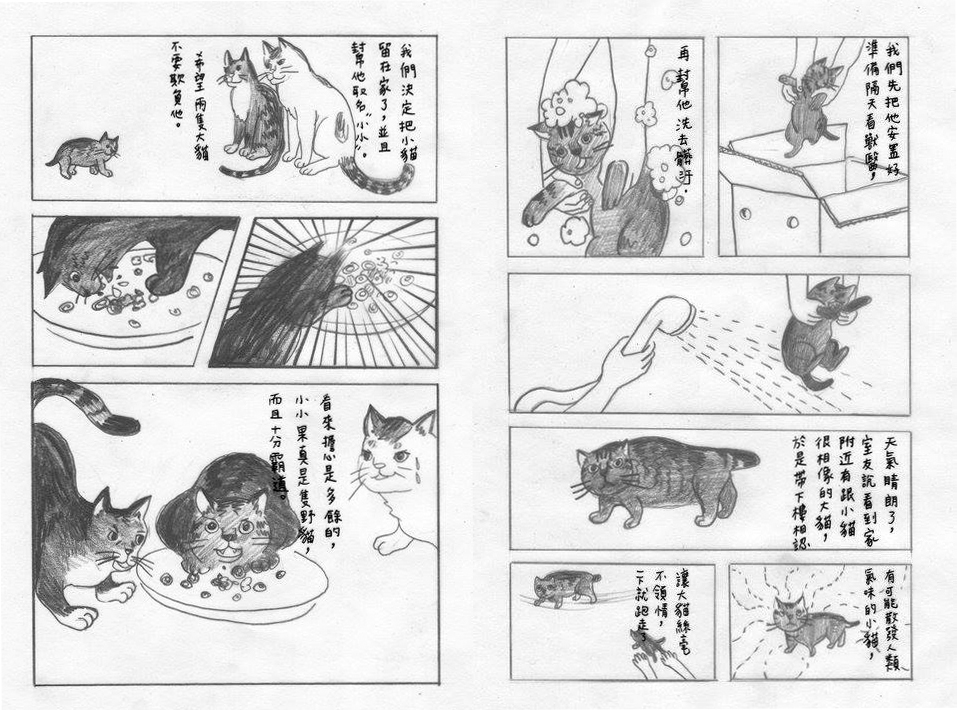 我們先把他安置好
準備隔天看獸醫，
再幫他洗去髒汙．
天氣晴朗了，
室友說看到家
附近有跟小貓
很相像的大貓，
於是帶下樓相認
有可能散發人類
氣味的小貓，
讓大貓絲毫
不領情，
一下就跑走了
我們決定把小貓
留在家了，並且
幫他取名“小小”。
希望兩隻大貓
不要欺負他。
看來擔心是多餘的，
小小果真是隻野貓，
而且十分霸道。